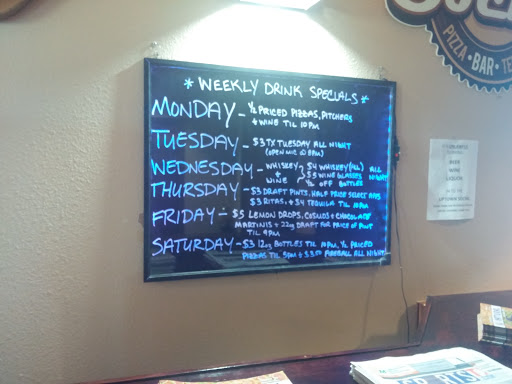 * WEEKLY DRINK SPECIALS *
MONDAY - 1/2 PRICED PIZZAS, PITCHERS
& WINE TIL 10PM
TUESDAY - $3 TX TUESDAY ALL NIGHT
(OPEN MIC @ 8PM)
WEDNESDAY - WHISKEY + WINE { $4 WHISKEY (ALL) ALL NIGHT
$5 WINE GLASSES
1/2 OFF BOTTLES
THURSDAY - $3 DRAFT PINTS, HALF PRICE SELECT APPS
$3 RITAS, & $4 TEQUILA TIL 10PM
FRIDAY - $5 LEMON DROPS, COSMOS & CHOCOLATE
MARTINIS + 22oz DRAFT FOR PRICE OF PINT
TIL 9PM
SATURDAY - $3 12oz BOTTLES TIL 10PM, 1/2 PRICED
PIZZAS TIL 9PM & $3.50 FIREBALL ALL NIGHT
PIZZA · BAR · TE
BEER
WINE
LIQUOR